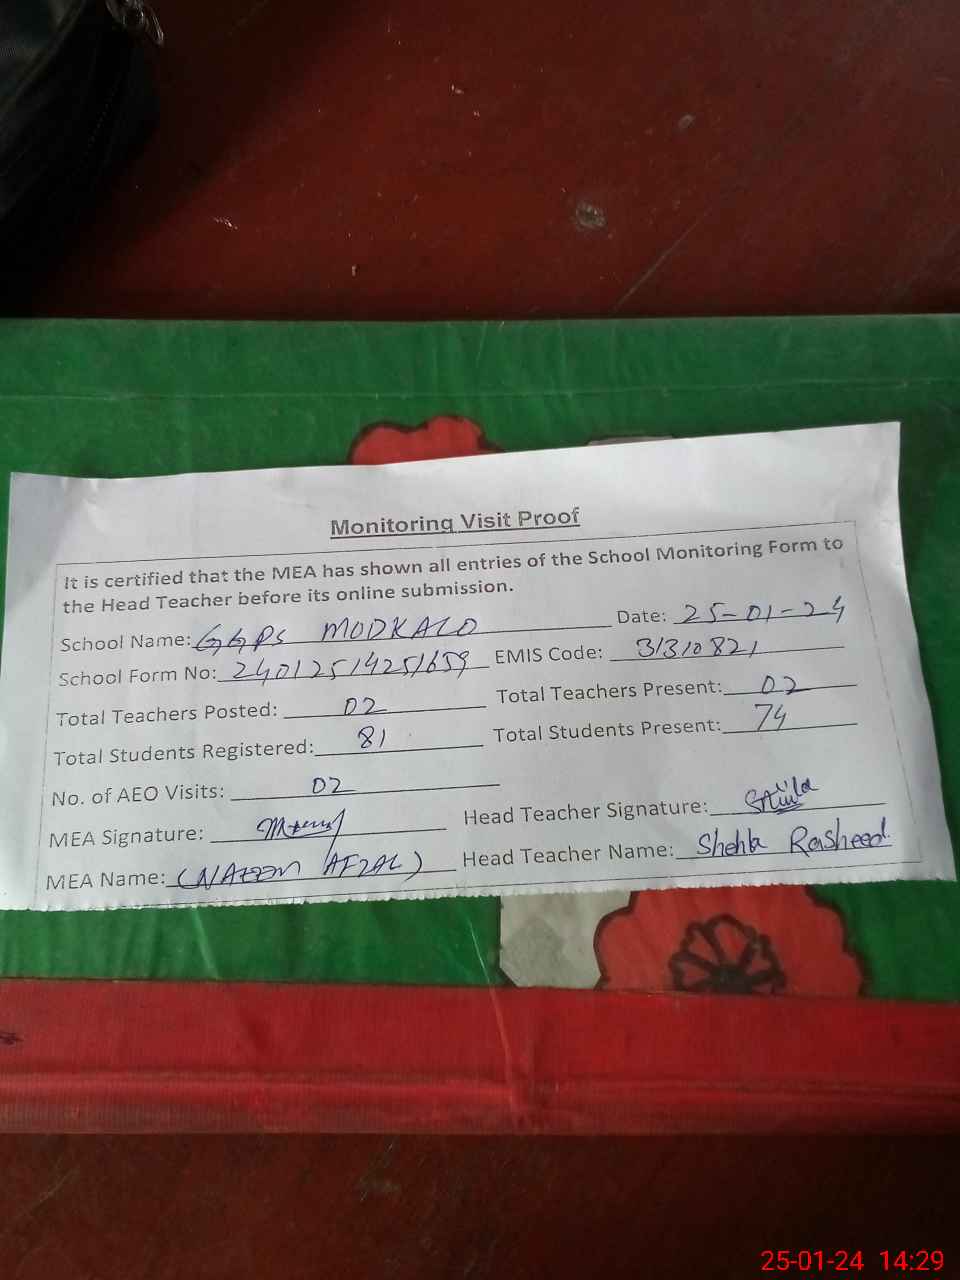 Monitoring Visit Proof
It is certified that the MEA has shown all entries of the School Monitoring Form to
the Head Teacher before its online submission.
School Name: GGPS MODKALO Date: 25-01-24
School Form No: 24012514251659 EMIS Code: 31310821
Total Teachers Posted: 02 Total Teachers Present: 02
Total Students Registered: 81 Total Students Present: 74
No. of AEO Visits: 02
MEA Signature: Head Teacher Signature:
MEA Name: (NAEEM AFZAL) Head Teacher Name: Shehla Rasheed
25-01-24 14:29